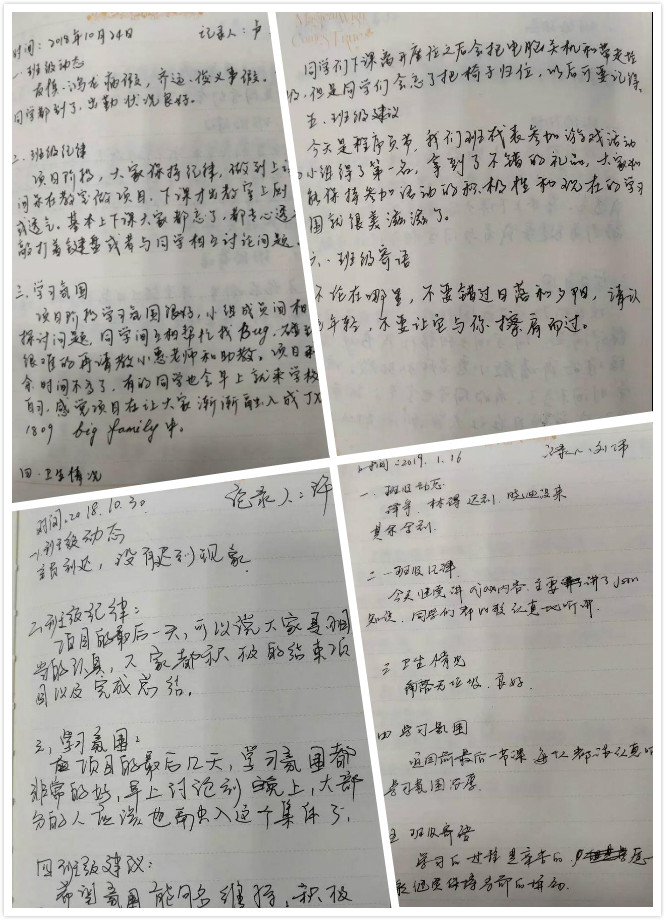 时间：2018年10月24日 记录人：卢
一.班级动态
病假，齐运、俊义事假。
同学都到了，出勤状况良好。
二.班级纪律
项目阶段，大家保持纪律，做到上课
间不在教室做项目，下课才出教室上厕
或透气。基本上下课大家都忘了，都专心
敲打着键盘或者与同学相互讨论问题。
三.学习氛围
项目阶段学习氛围很好，小组成员间相
探讨问题，同学间互相帮忙找Bug，碰到
很难的再请教小惠老师和助教。项目剩
余时间不多了，有的同学也会早上就来学校
自习，感觉项目在让大家渐渐融入成JX
1809 big family中。
四.卫生情况
同学们下课离开座位之后会把电脑关机和带走垃
圾，但是同学们会忘了把椅子归位，以后可要记得
五.班级建议
今天是程序员节，我们班代表参加游戏活动
小组得了第一名，拿到了不错的礼品，大家如
能保持参加活动的积极性和现在的学习
围就很美滋滋了。
六.班级寄语
不论在哪里，不要错过日落和夕阳，请认
年轻，不要让它与你擦肩而过。
时间：2018.10.30 记录人：许
一.班级动态
全员到达，没有迟到现象
二.班级纪律：
项目的最后一天，可以说大家是相
当的认真，大家都积极的结束项
目以及完成总结。
三.学习氛围：
在项目的最后几天，学习氛围都
非常的好，早上讨论到晚上，大部
分的人应该也融入这个集体了。
四.班级建议：
希望氛围能够维持，积极
时间：2019.1.16 记录人：刘伟
一.班级动态
迟到，没来
其余全到。
二.班级纪律
今天继续讲ajax内容，主要讲了Json
知识，同学们都比较认真地听课。
三.卫生情况
角落无垃圾，良好。
四.学习氛围
项目前最后一节课，每个人都很认真的
学习氛围浓厚。
五.班级寄语
学习的过程是辛苦的